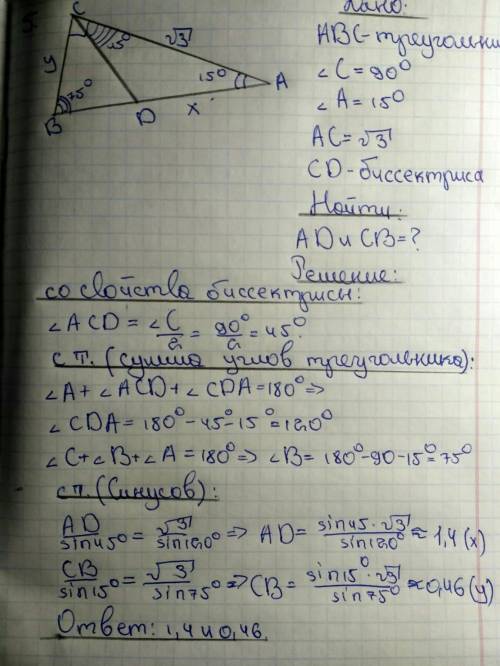 5.
C
15°
√3
y
15°
A
75°
x
B
D
Дано:
ABC-треугольни
∠C=90°
∠A=15°
AC=√3
CD-биссектриса
Найти:
AD и CB=?
Решение:
со свойства биссектрисы:
∠ACD = ∠C/2 = 90°/2 = 45°.
с т. (сумма углов треугольника):
∠A+∠ACD+∠CDA=180°=>
∠CDA=180°-45°-15°=120°
∠C+∠B+∠A=180°=>∠B=180°-90-15°=75°
с т. (Синусов):
AD/sin45° = √3/sin120° => AD= sin45·√3/sin120° ≈ 1,4 (x)
CB/sin15° = √3/sin75° => CB= sin15°·√3/sin75° ≈ 0,46 (y)
Ответ: 1,4 и 0,46.